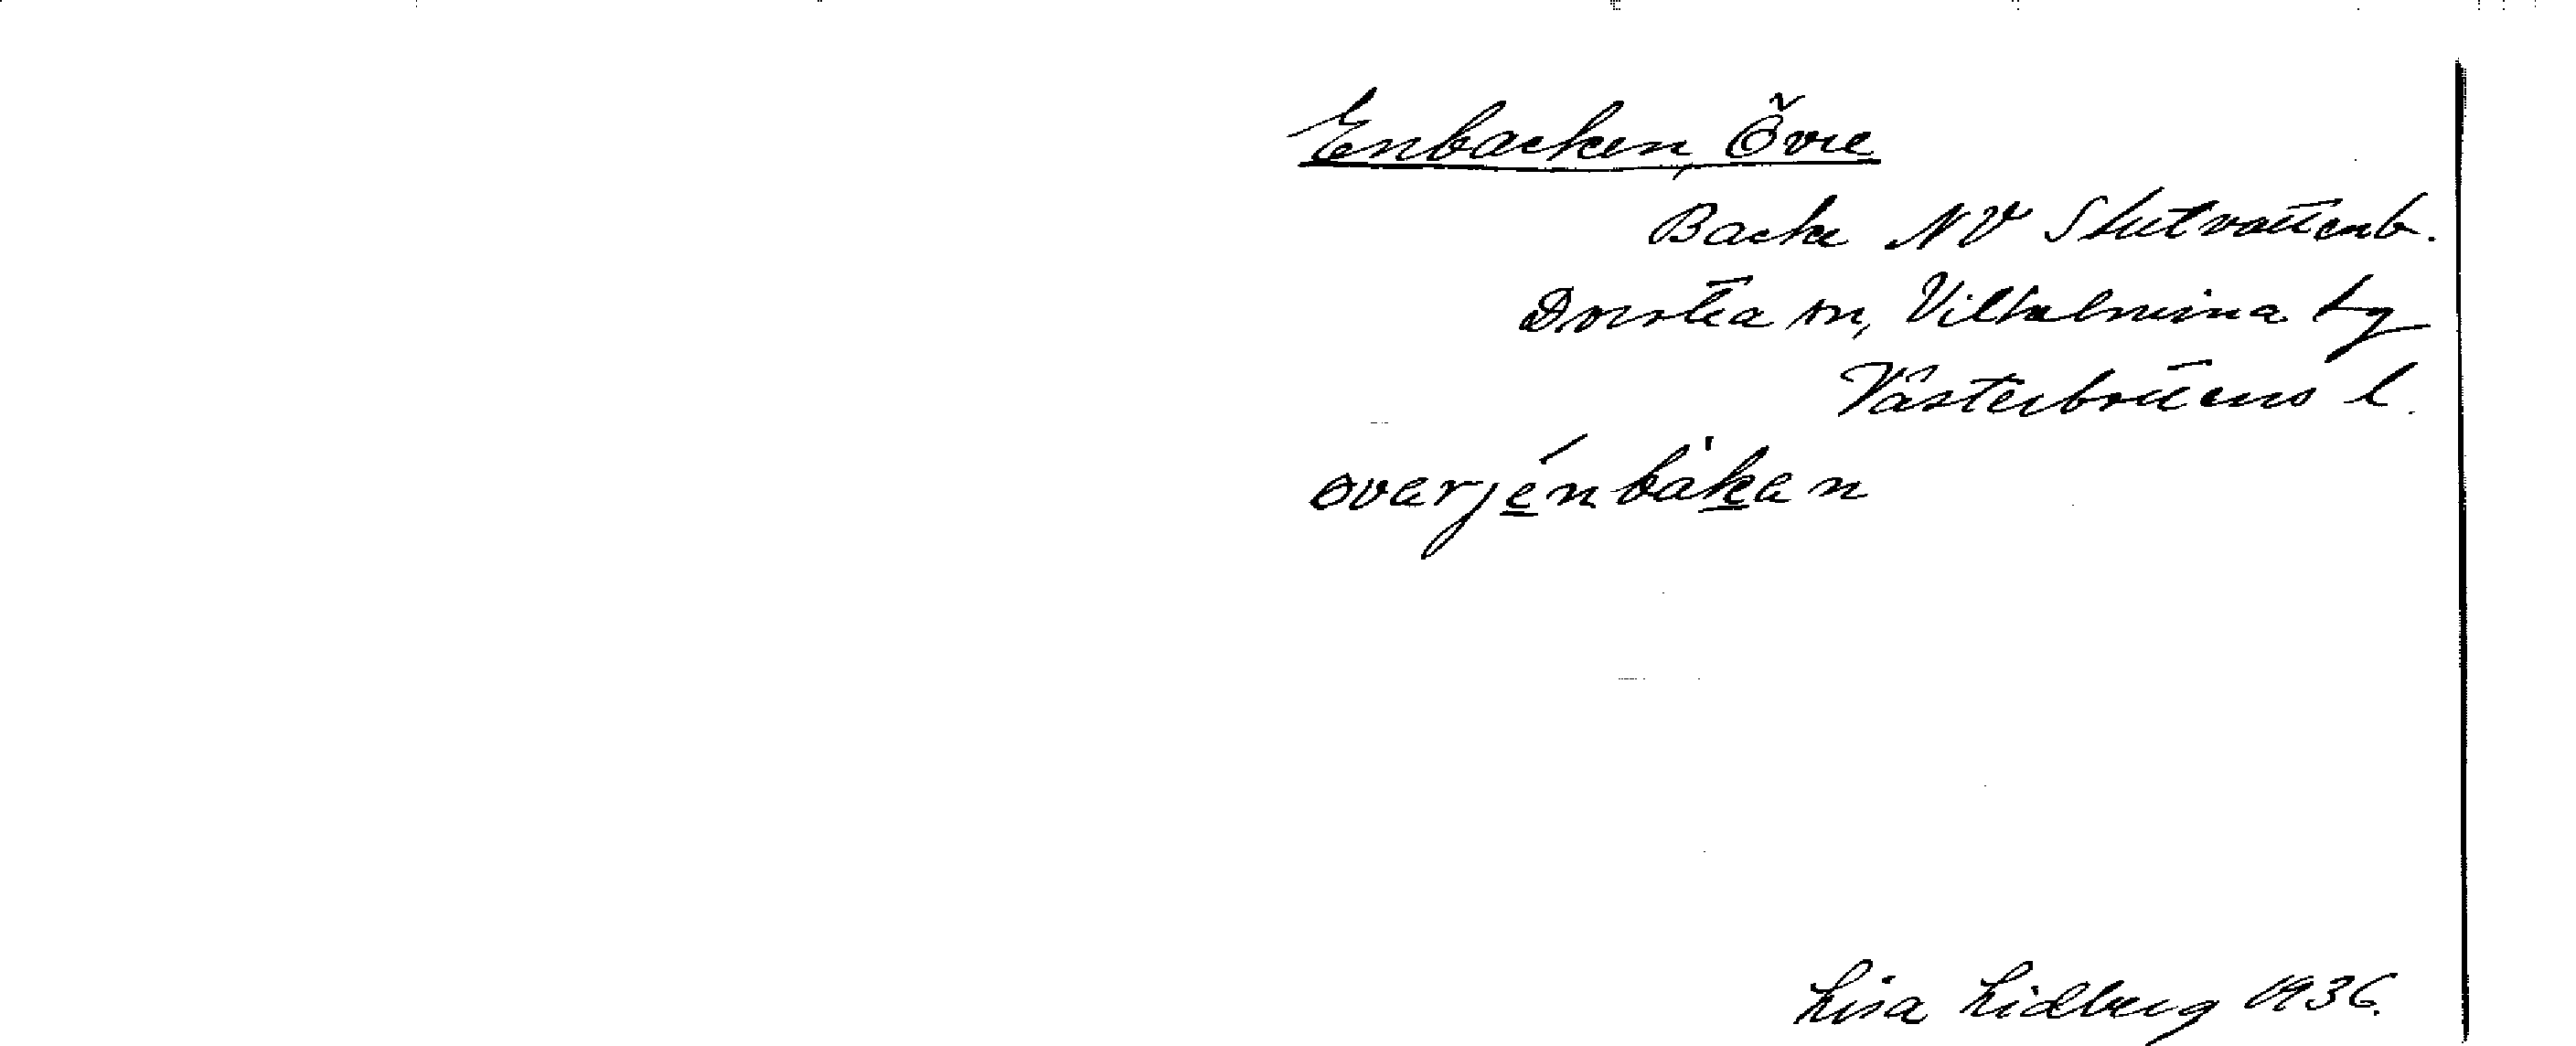 Enbacken, Övre
Backe NV Slutvattenb.
Dorotea sn, Vilhelmina tg
Västerbottens l.
øverjénbàken
Lisa Lidberg 1936.